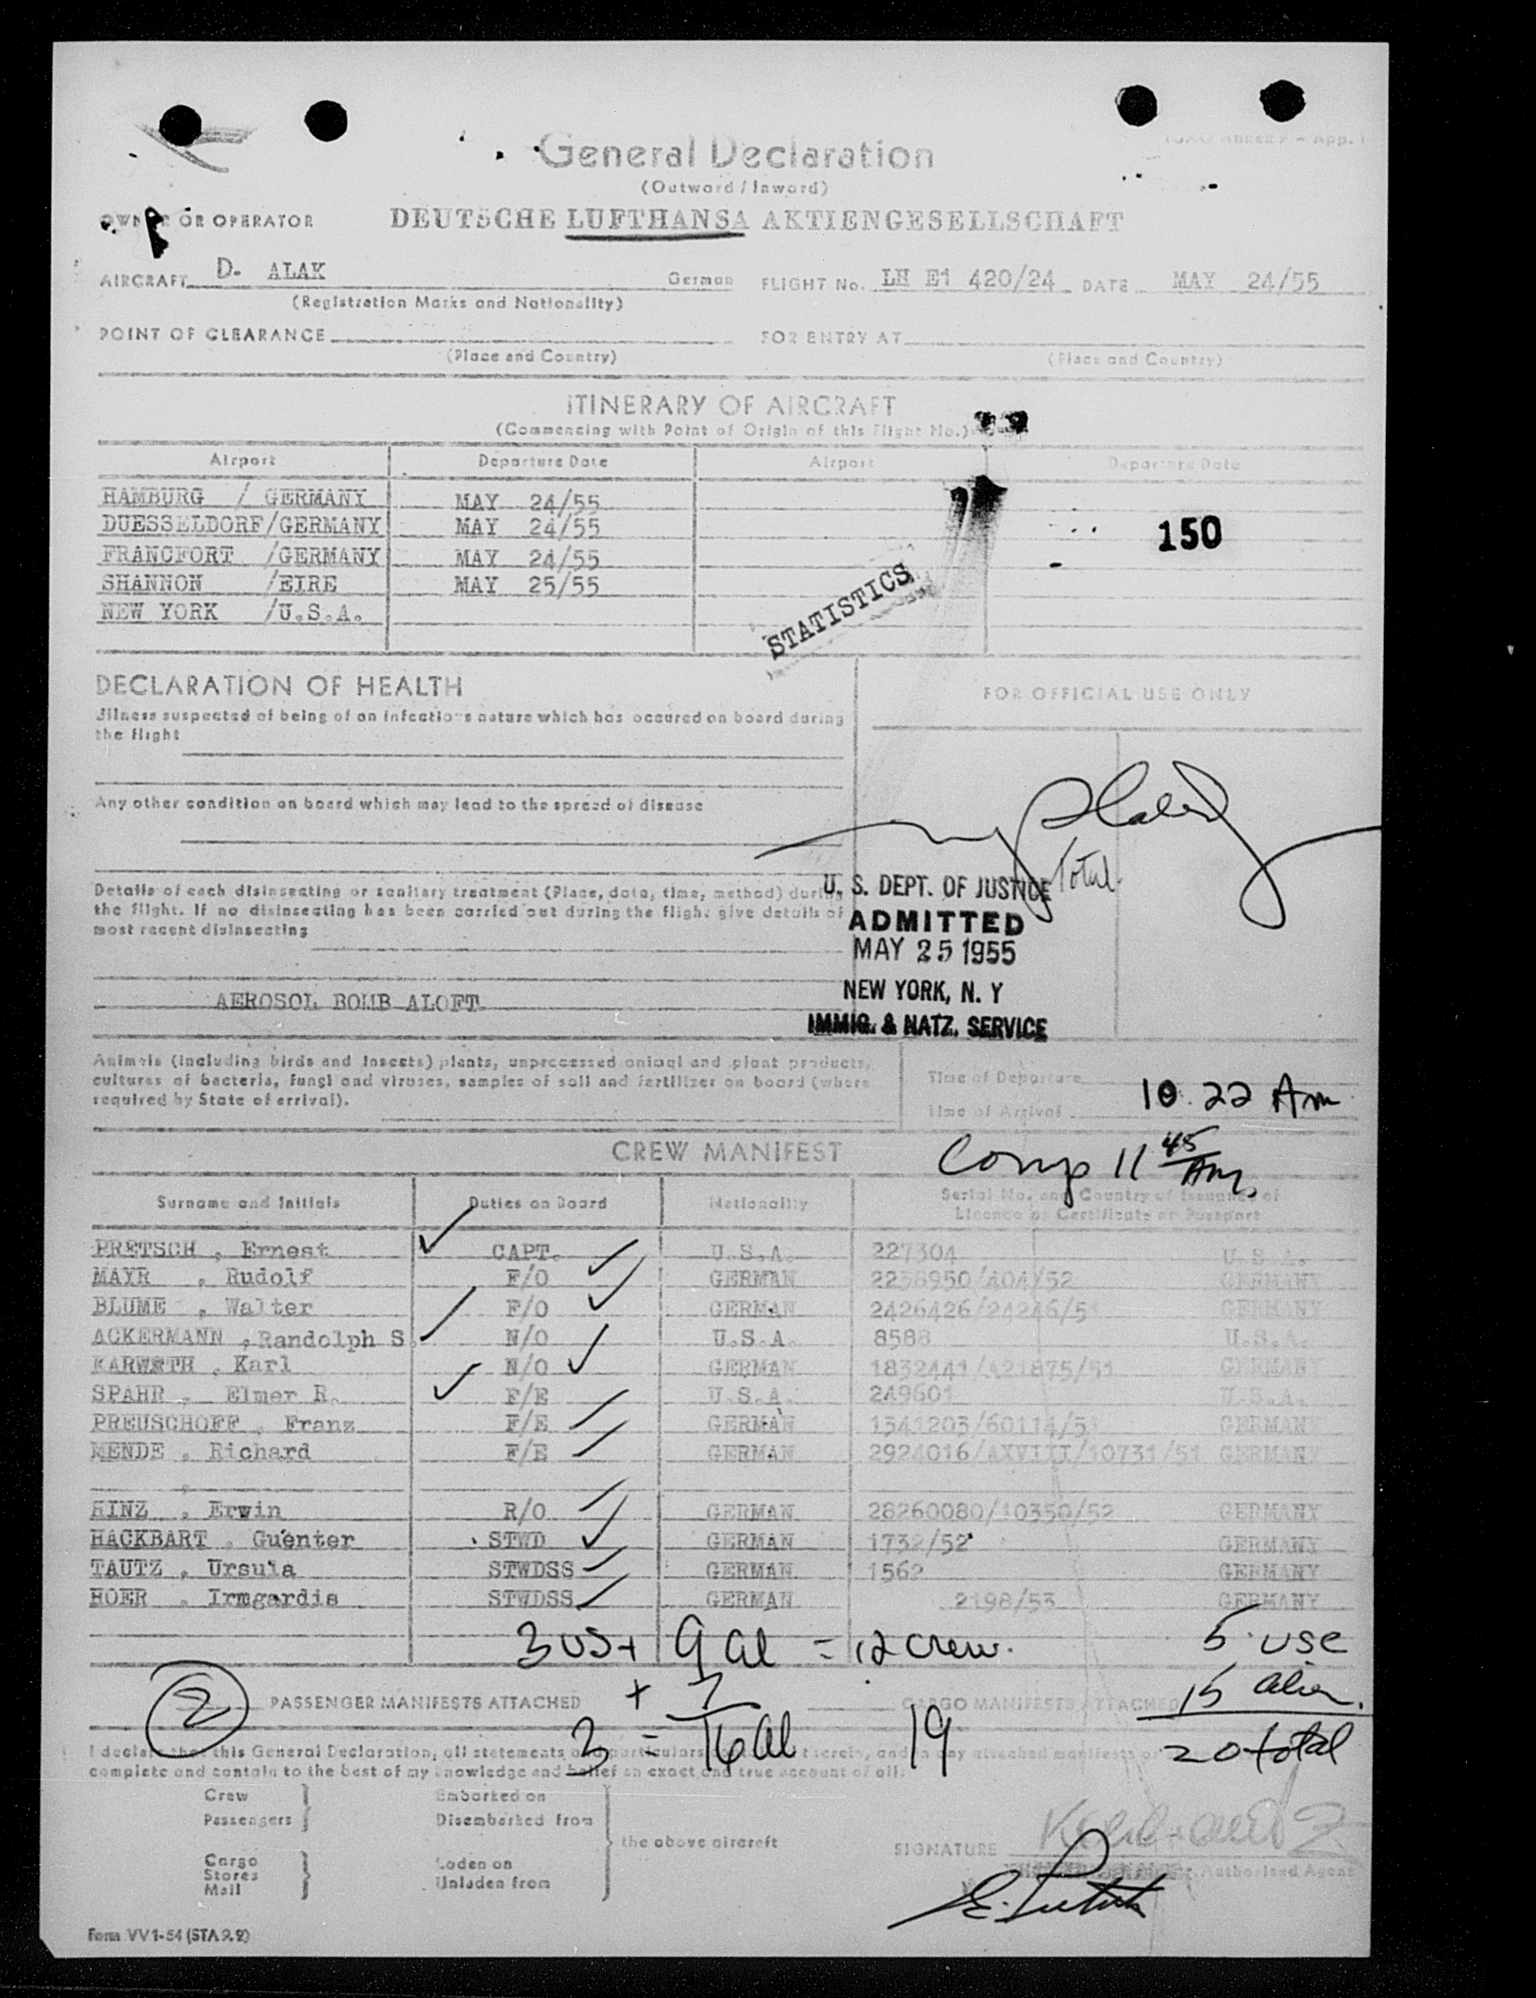 General Declaration
(Outward / Inward)
OWNER OR OPERATOR DEUTSCHE LUFTHANSA AKTIENGESELLSCHAFT
AIRCRAFT D- ALAK German FLIGHT No. LH E1 420/24 DATE MAY 24/55
(Registration Marks and Nationality)
POINT OF CLEARANCE FOR ENTRY AT
(Place and Country) (Place and Country)
ITINERARY OF AIRCRAFT
(Commencing with Point of Origin of this Flight No.)
Airport Departure Date Airport Departure Date
HAMBURG / GERMANY MAY 24/55
DUESSELDORF/GERMANY MAY 24/55 150
FRANCFORT /GERMANY MAY 24/55
SHANNON /EIRE MAY 25/55
NEW YORK /U.S.A.
STATISTICS
DECLARATION OF HEALTH FOR OFFICIAL USE ONLY
Illness suspected of being of an infectious nature which has occured on board during
the flight
Any other condition on board which may lead to the spread of disease
Total
Details of each disinsecting or sanitary treatment (Place, date, time, method) during
the flight. If no disinsecting has been carried out during the flight give details of
most recent disinsecting
U. S. DEPT. OF JUSTICE
ADMITTED
MAY 25 1955
NEW YORK, N. Y
IMMIG. & NATZ. SERVICE
AEROSOL BOMB ALOFT
Animals (including birds and insects) plants, unprocessed animal and plant products,
cultures of bacteria, fungi and viruses, samples of soil and fertilizer on board (where
required by State of arrival).
Time of Departure
Time of Arrival 10.22 Am
CREW MANIFEST Comp 11 45 Am
Surname and Initials Duties on Board Nationality Serial No. and Country of Issuance of
Licence or Certificate or Passport
PRETSCH , Ernest CAPT. U.S.A. 227304 U.S.A.
MAYR , Rudolf F/O GERMAN 2238950/404/52 GERMANY
BLUME , Walter F/O GERMAN 2426426/24246/51 GERMANY
ACKERMANN ,Randolph S. N/O U.S.A. 8588 U.S.A.
KARWETH , Karl N/O GERMAN 1832441/A21875/51 GERMANY
SPAHR , Elmer R. F/E U.S.A. 249601 U.S.A.
PREUSCHOFF , Franz F/E GERMAN 1341203/60114/51 GERMANY
MENDE , Richard F/E GERMAN 2924016/AXVIII/10731/51 GERMANY
,
HINZ , Erwin R/O GERMAN 28260080/10350/52 GERMANY
HACKBART , Guenter STWD GERMAN 1732/52 GERMANY
TAUTZ , Ursula STWDSS GERMAN 1562 GERMANY
HOER , Irmgardis STWDSS GERMAN 2198/53 GERMANY
3 US + 9 al = 12 crew. 5 USC
2 PASSENGER MANIFESTS ATTACHED + 7 CARGO MANIFESTS ATTACHED 15 alien.
3 = 16 al 19 20 total
I declare that this General Declaration, all statements and particulars contained therein, and in any attached manifests or
complete and contain to the best of my knowledge and belief an exact and true account of all:
Crew Embarked on
Passengers Disembarked from
the above aircraft
Cargo Laden on
Stores
Mail Unladen from
SIGNATURE
Authorised Agent
Form VV 1-54 (STA 9.2)